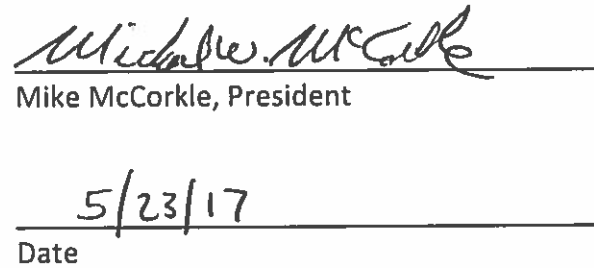 Michael W. McCorkle
Mike McCorkle, President
5/23/17
Date